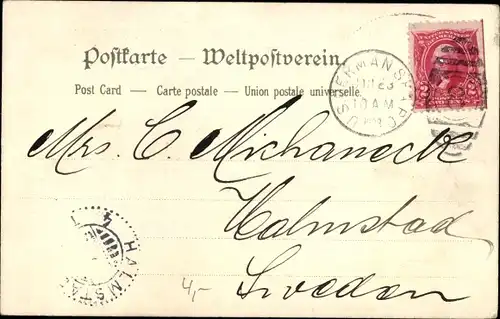 Postkarte - Weltpostverein.
Post Card — Carte postale — Union postale universelle.
U.S. GERMAN SEA POST
10 AM
2 2
Mrs. C. Michaneck
Halmstad
Sweden
HALMSTAD
4,-